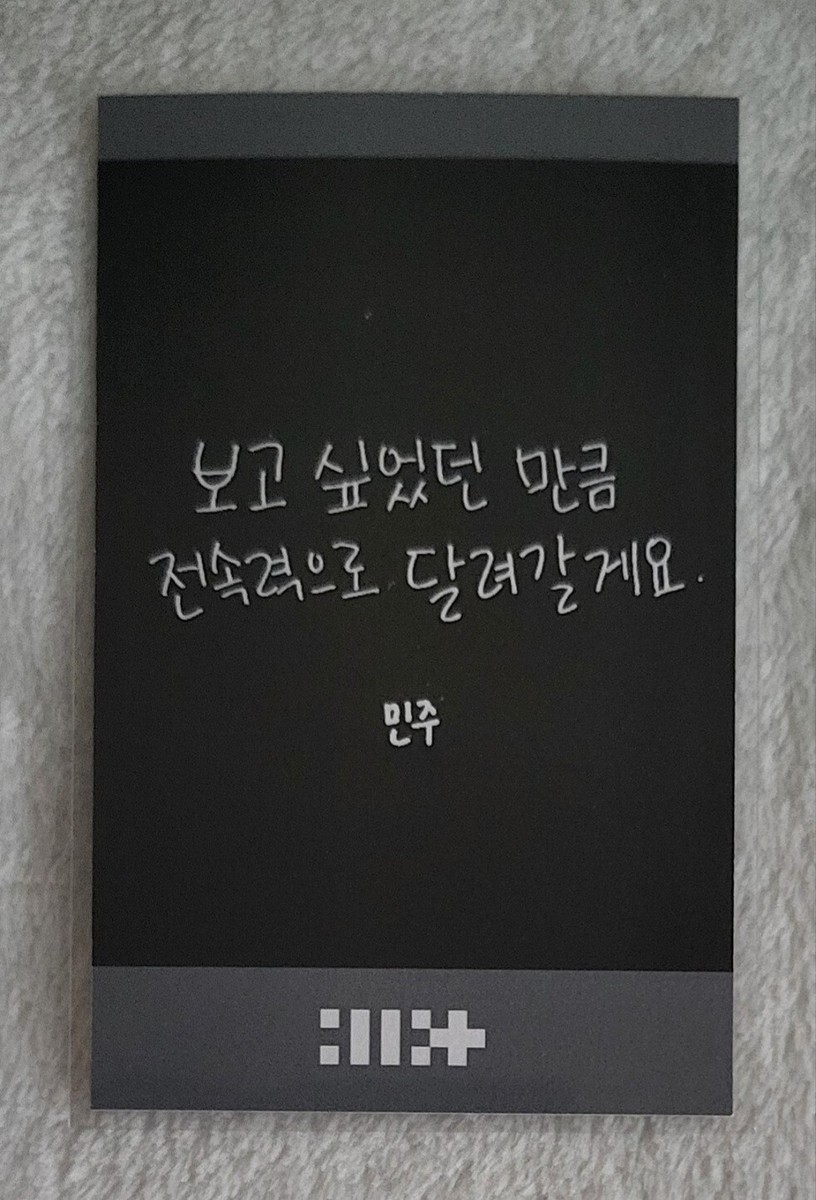 보고 싶었던 만큼
전속력으로 달려갈게요.
민주